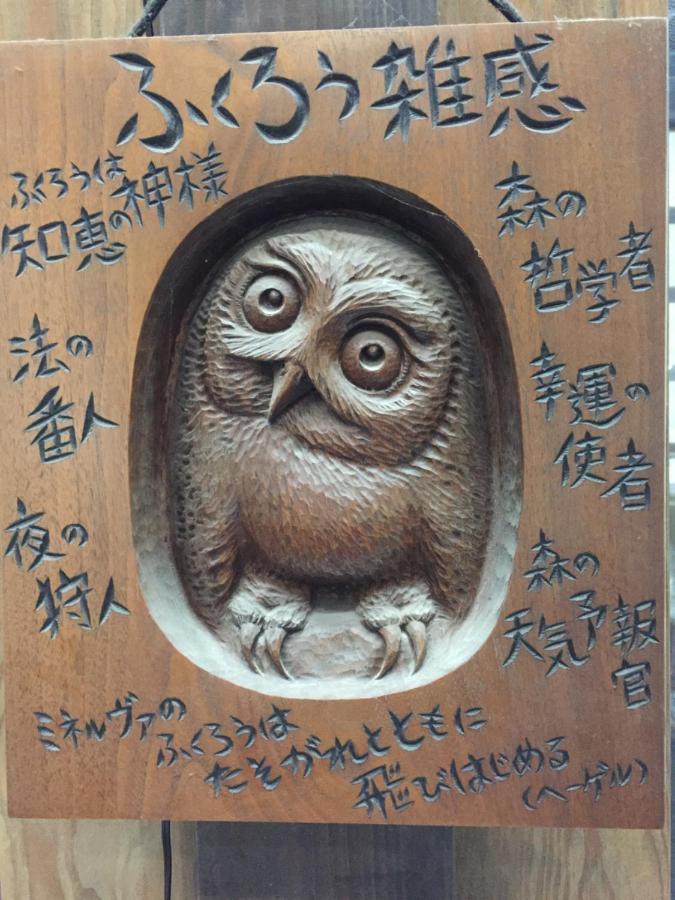 ふくろう雑感
ふくろうは
知恵の神様
法の
番人
夜の
狩人
森の
哲学者
幸運の
使者
森の
天気予報
官
ミネルヴァの
ふくろうは
たそがれとともに
飛びはじめる
(ヘーゲル)